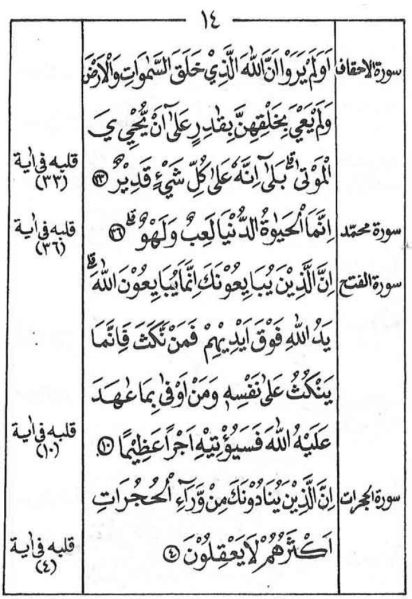 ١٤
سورة الاحقاف اَوَلَمْ يَرَوْا اَنَّ اللّٰهَ الَّذِيْ خَلَقَ السَّمٰوَاتِ وَالْاَرْضَ
وَلَمْ يَعْيَ بِخَلْقِهِنَّ بِقٰدِرٍ عَلٰٓى اَنْ يُّحْيِيَ
الْمَوْتٰى ۗ بَلٰٓى اِنَّهٗ عَلٰى كُلِّ شَيْءٍ قَدِيْرٌ ٣٣ قلبه فى اية (٣٣)
سورة محمّد اِنَّمَا الْحَيٰوةُ الدُّنْيَا لَعِبٌ وَّلَهْوٌ ۗ ٣٦ قلبه فى اية (٣٦)
سورة الفتح اِنَّ الَّذِيْنَ يُبَايِعُوْنَكَ اِنَّمَا يُبَايِعُوْنَ اللّٰهَ ۗ
يَدُ اللّٰهِ فَوْقَ اَيْدِيْهِمْ فَمَنْ نَّكَثَ فَاِنَّمَا
يَنْكُثُ عَلٰى نَفْسِهٖ وَمَنْ اَوْفٰى بِمَا عٰهَدَ
عَلَيْهُ اللّٰهَ فَسَيُؤْتِيْهِ اَجْرًا عَظِيْمًا ١٠ قلبه فى اية (١٠)
سورة الحجرات اِنَّ الَّذِيْنَ يُنَادُوْنَكَ مِنْ وَّرَآءِ الْحُجُرَاتِ
اَكْثَرُهُمْ لَا يَعْقِلُوْنَ ٤ قلبه فى اية (٤)